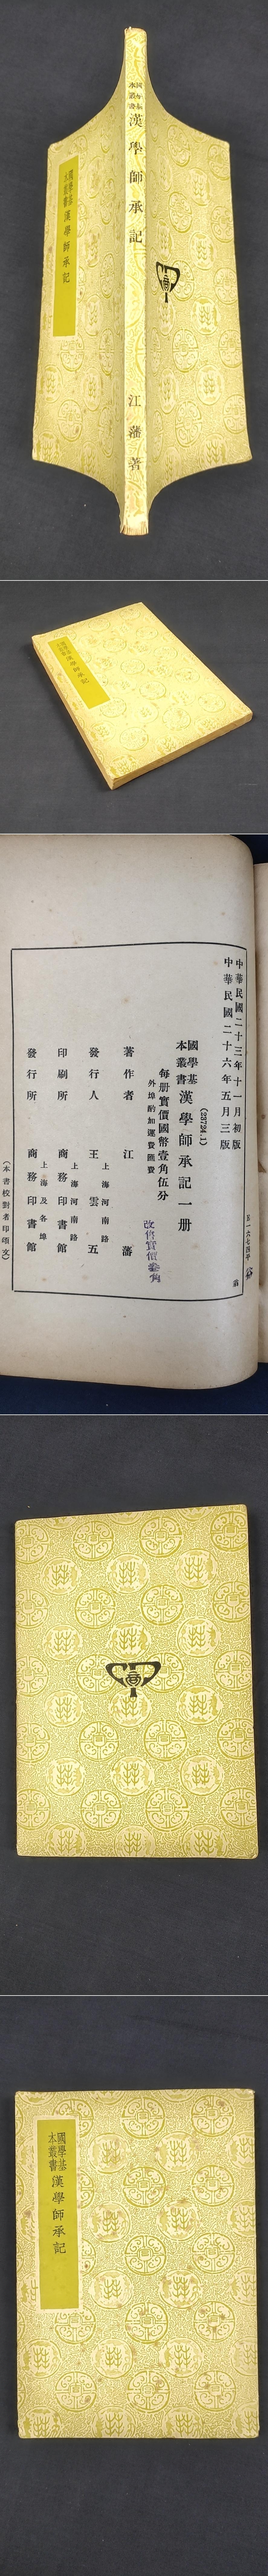 國學基
本叢書
漢學師承記
江藩著
國學基
本叢書
漢學師承記
國學基
本叢書
漢學師承記
中華民國二十三年十一月初版
中華民國二十六年五月三版
(23724.1)
國學基
本叢書
漢學師承記一册
每册實價國幣壹角伍分
外埠酌加運費匯費
改售實價
著作者 江藩
發行人 王雲五
上海河南路
印刷所 商務印書館
上海河南路
發行所 商務印書館
上海及各埠
(本書校對者印頌文)
國學基
本叢書
漢學師承記